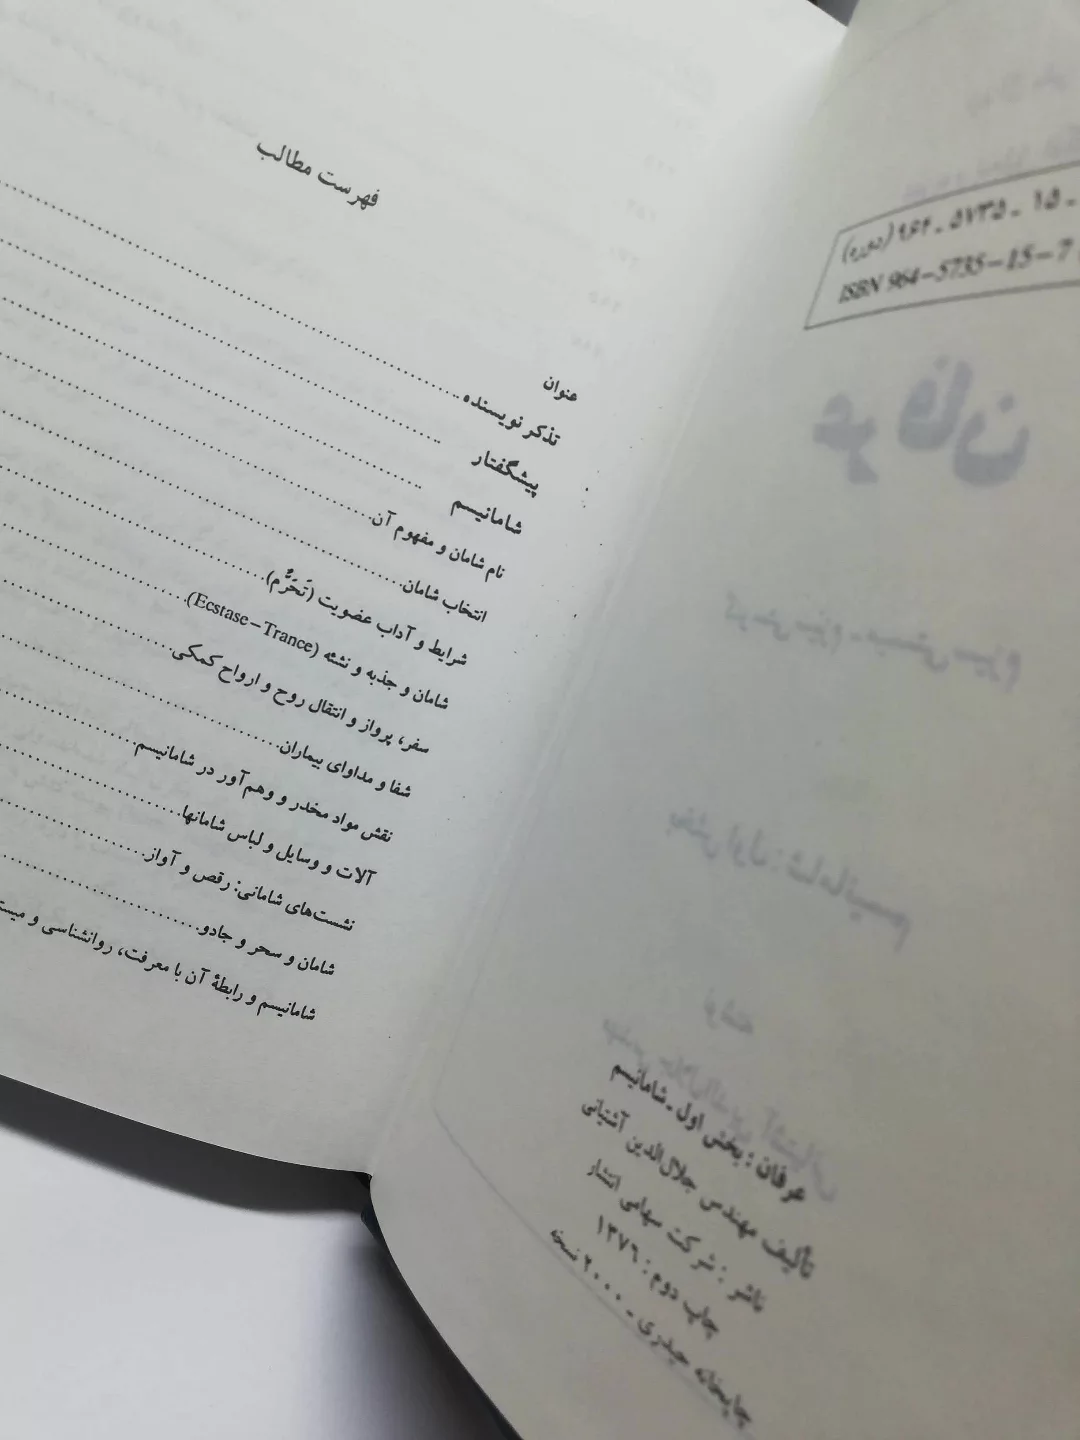 ۹۶۴ ـ ۵۷۳۵ ـ ۱۵ ـ (دوره)
ISBN 964-5735-15-7
عرفان
بخش اول: شامانیسم
نوشته
مهندس جلال‌الدین آشتیانی
عرفان : بخش اول ـ شامانیسم
تألیف مهندس جلال‌الدین آشتیانی
ناشر : شرکت سهامی انتشار
چاپ دوم : ۱۳۷۶
چاپخانه حیدری ـ ۲۰۰۰ نسخه
فهرست مطالب
عنوان
تذکر نویسنده
پیشگفتار
شامانیسم
نام شامان و مفهوم آن
انتخاب شامان
شرایط و آداب عضویت (تَحَرُّم)
شامان و جذبه و نشئه (Ecstase-Trance)
سفر، پرواز و انتقال روح و ارواح کمکی
شفا و مداوای بیماران
نقش مواد مخدر و وهم‌آور در شامانیسم
آلات و وسایل و لباس شامانها
نشست‌های شامانی: رقص و آواز
شامان و سحر و جادو
شامانیسم و رابطهٔ آن با معرفت، روانشناسی و